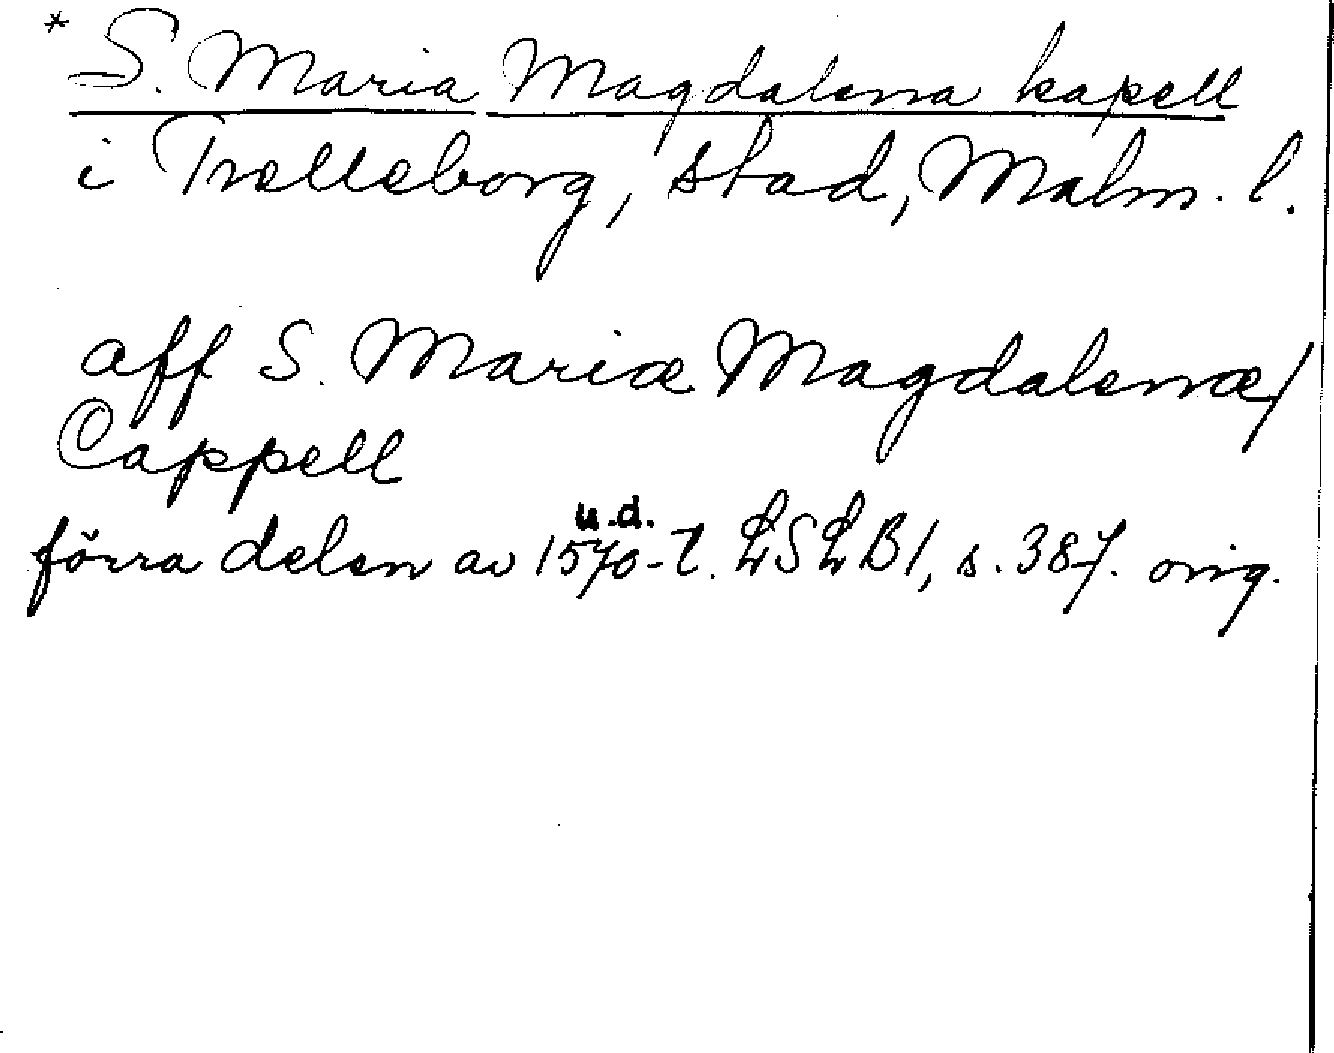 * S. Maria Magdalena kapell
i Trelleborg, stad, Malm. l.
aff S. Mariæ Magdalenæ/
Cappell
u.d.
förra delen av 1570-t. LSLB1, s. 387. orig.